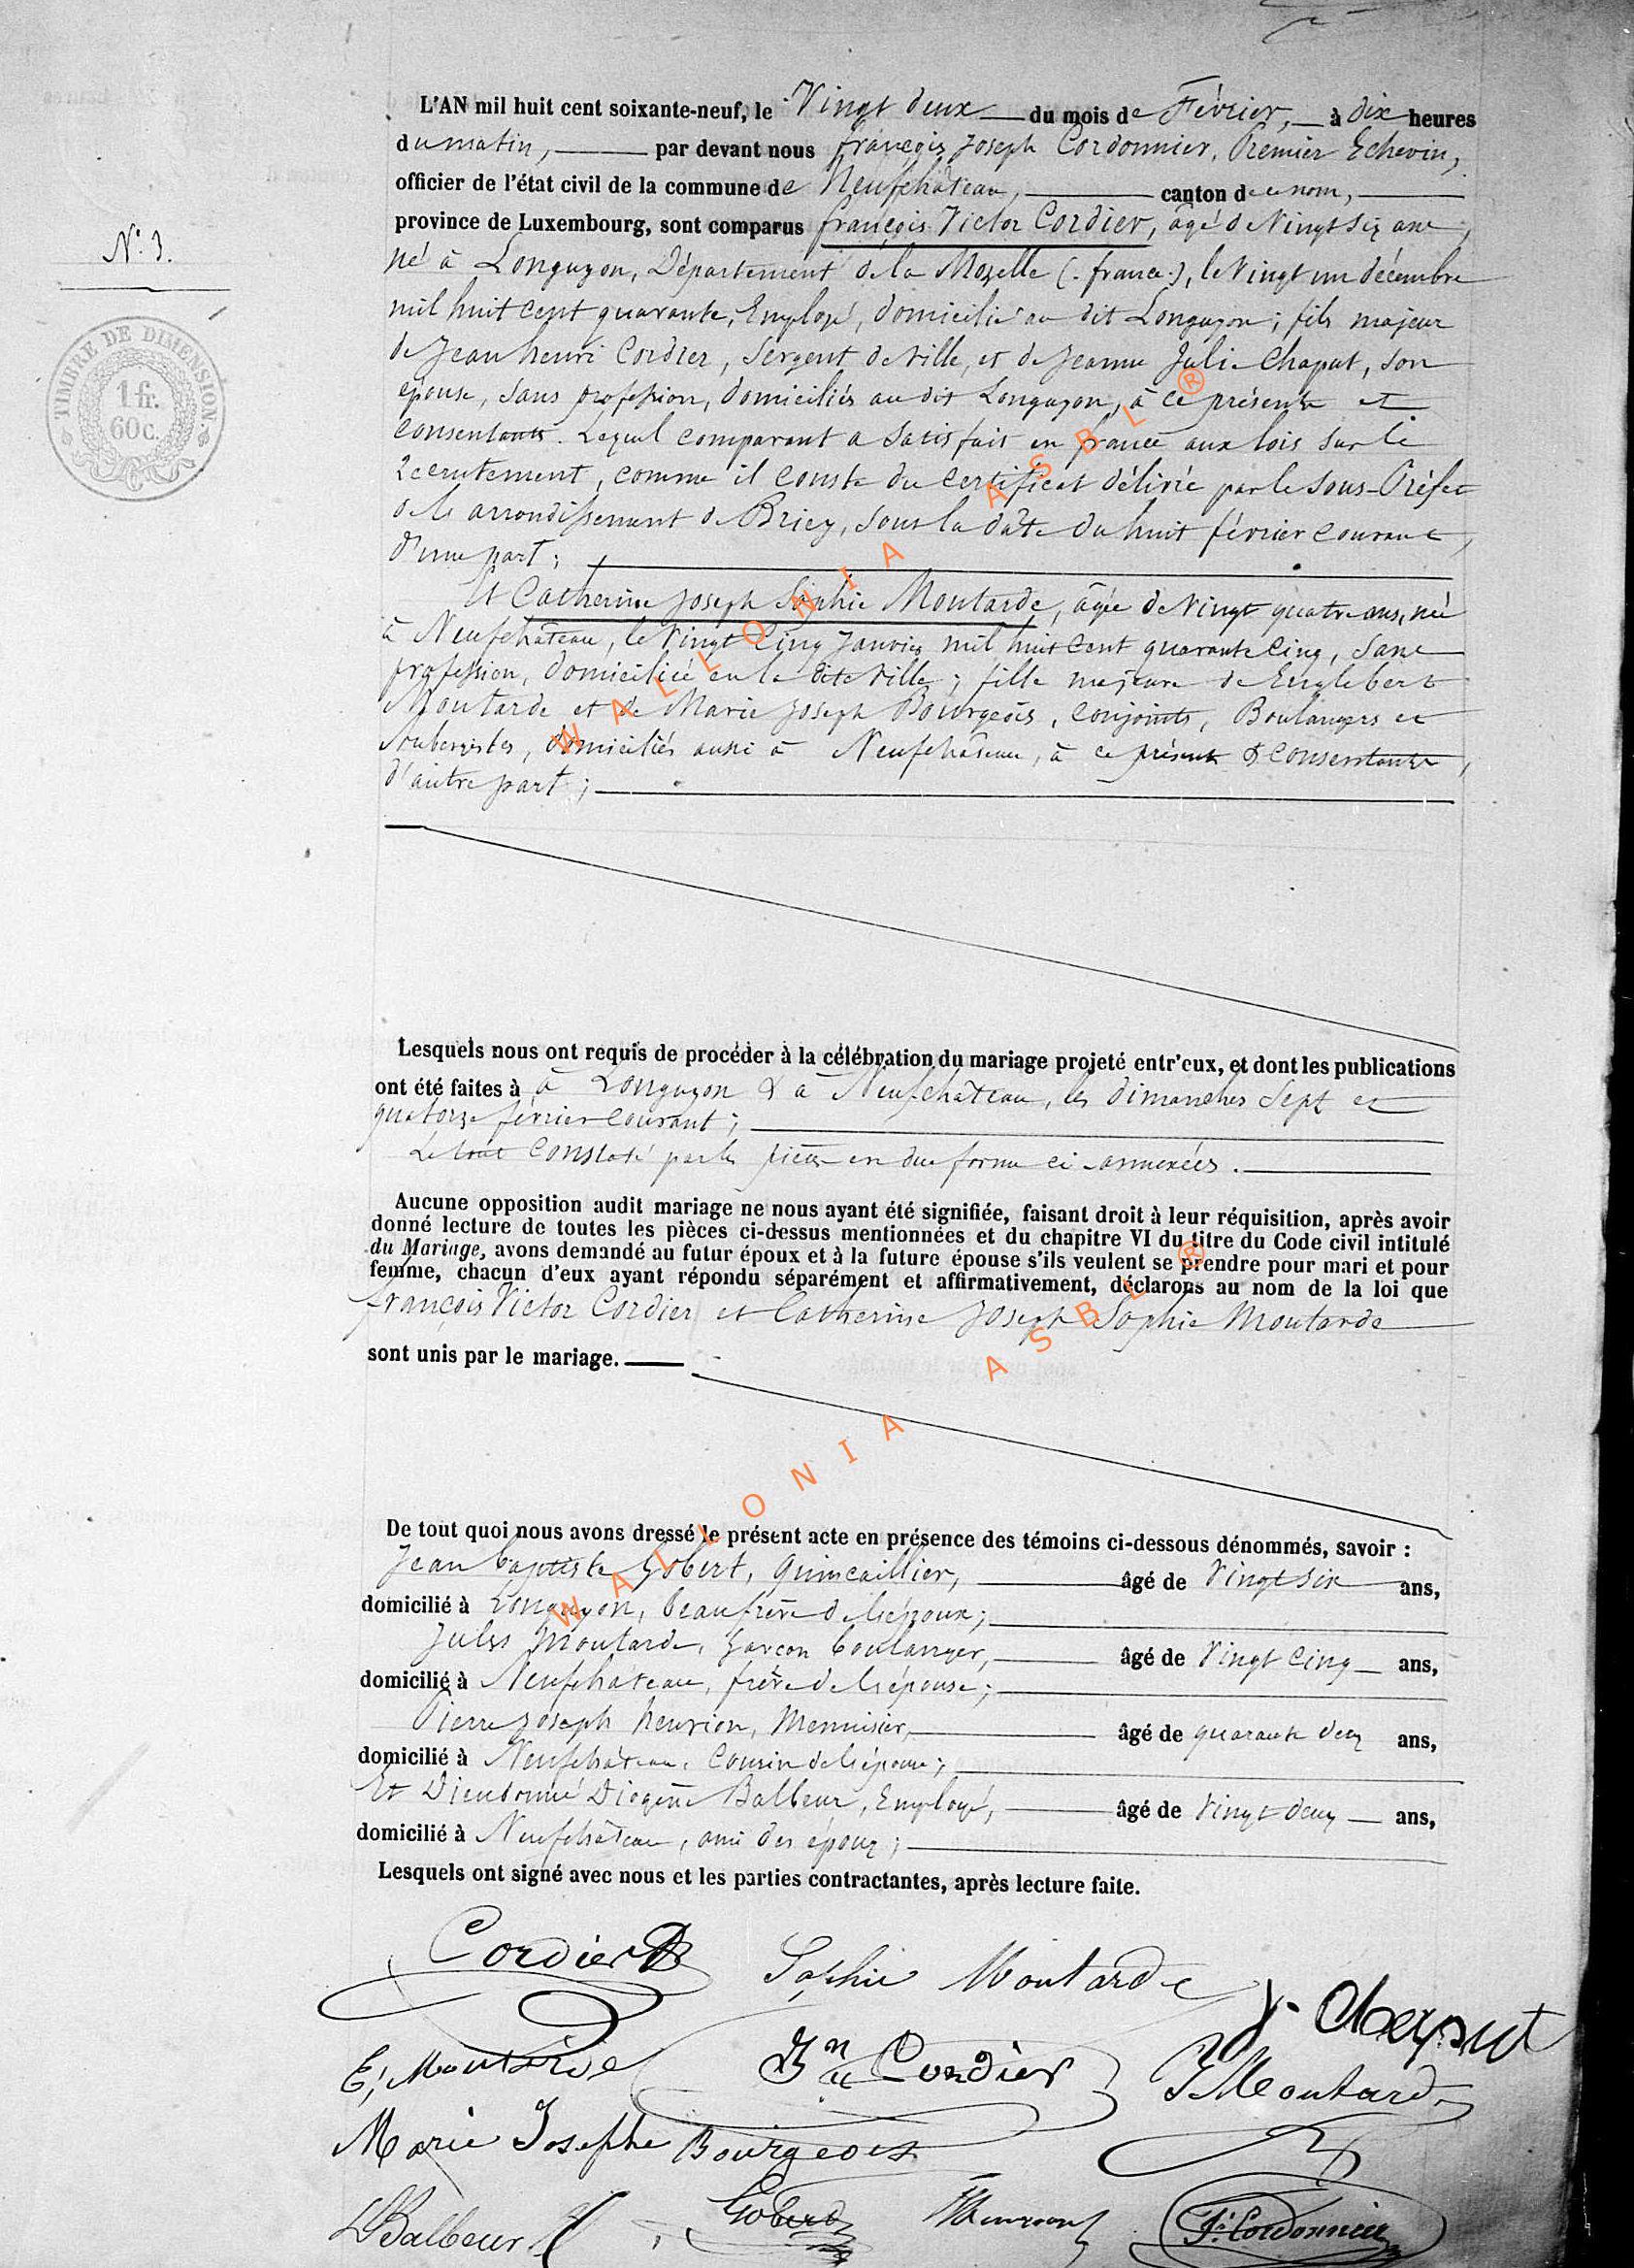 L'AN mil huit cent soixante-neuf, le Vingt deux du mois de Février, à dix heures
du matin, par devant nous françois Joseph Cordonnier, Premier Echevin,
officier de l'état civil de la commune de Neufchâteau, canton de ce nom,
province de Luxembourg, sont comparus françois Victor Cordier, âgé de Vingt six ans,
N° 3.
né à Longuyon, Département de la Moselle (france), le Vingt un décembre
mil huit cent quarante, Employé, domicilié au dit Longuyon; fils majeur
TIMBRE DE DIMENSION.
1 fr.
60c.
de Jean henri Cordier, Sergent de ville, et de Jeanne Julie Chaput, son
épouse, sans profession, domiciliés au dit Longuyon, à ce présents et
consentants. Lequel comparant a satisfait en france aux lois sur le
recrutement, comme il conste du certificat délivré par le Sous-Préfet
de l'arrondissement de Briey, sous la date du huit février courant,
d'une part;
Et Catherine Joseph Sophie Moutarde, âgée de vingt quatre ans, née
à Neufchâteau, le vingt cinq Janvier mil huit cent quarante cinq, sans
profession, domiciliée en la dite ville; fille majeure de Englebert
Moutarde et de Marie Joseph Bourgeois, conjoints, Boulangers et
domiciliés aussi à Neufchâteau, à ce présents & consentants,
d'autre part;
WALLONIA ASBL ®
Lesquels nous ont requis de procéder à la célébration du mariage projeté entr'eux, et dont les publications
ont été faites à à Longuyon & à Neufchâteau, les dimanches Sept et
quatorze février courant;
Le tout constaté par les pièces en due forme ci-annexées.
Aucune opposition audit mariage ne nous ayant été signifiée, faisant droit à leur réquisition, après avoir
donné lecture de toutes les pièces ci-dessus mentionnées et du chapitre VI du titre du Code civil intitulé
du Mariage, avons demandé au futur époux et à la future épouse s'ils veulent se prendre pour mari et pour
femme, chacun d'eux ayant répondu séparément et affirmativement, déclarons au nom de la loi que
françois Victor Cordier et Catherine Joseph Sophie Moutarde
sont unis par le mariage.
WALLONIA ASBL ®
De tout quoi nous avons dressé le présent acte en présence des témoins ci-dessous dénommés, savoir :
Jean baptiste Gobert, quincaillier, âgé de Vingt six ans,
domicilié à Longuyon, beaufrère de l'époux;
Jules Moutarde, garçon boulanger, âgé de Vingt cinq ans,
domicilié à Neufchâteau, frère de l'épouse;
Pierre Joseph henrion, Menuisier, âgé de quarante deux ans,
domicilié à Neufchâteau, Cousin de l'épouse;
Et Dieudonné Diogène Balbeur, Employé, âgé de Vingt deux ans,
domicilié à Neufchâteau, ami des époux;
Lesquels ont signé avec nous et les parties contractantes, après lecture faite.
Cordier
Sophie Moutarde
J. Chaput
E, Moutarde
Cordier
J Moutarde
Marie Josephe Bourgeois
D Balbeur
Gobert
Henrion
F. Cordonnier